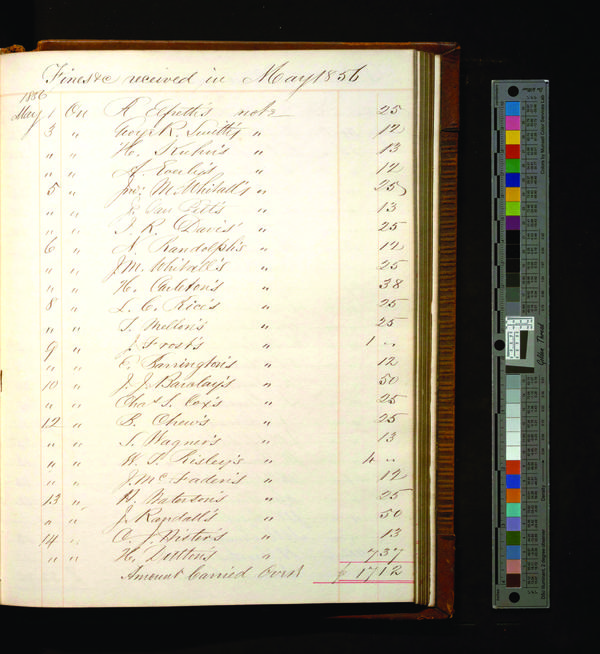 Fines &c received in May 1856
1856
May 1 On R Elfreth's note 25
3 " Geo. K. Smith's " 12
" " H. Kuhn's " 13
" " A " 12
5 " Jno: M. Whitall's " 25
" " J. Van Pelt's " 13
" " J. K. Davis' " 25
6 " N. Randolph's " 12
" " J. M. Whitall's " 25
" " H. Carleton's " 38
8 " L. C. Rice's " 25
" " S. Mellon's " 25
9 " J. Frost's " 1 "
" " E. Barrington's " 12
10 " J. J. Barclay's " 50
" " Chas. S. Cox's " 25
12 " B. Chew's " 25
" " S. Wagner's " 13
" " W. S. Risley's " 4 "
" " J. McFaden's " 12
13 " H. Waterson's " 25
" " J. Randall's " 50
14 " C. J. Wister's " 13
" " H. Dutton's " 7 37
Amount Carried Over $ 17 12
Golden Thread